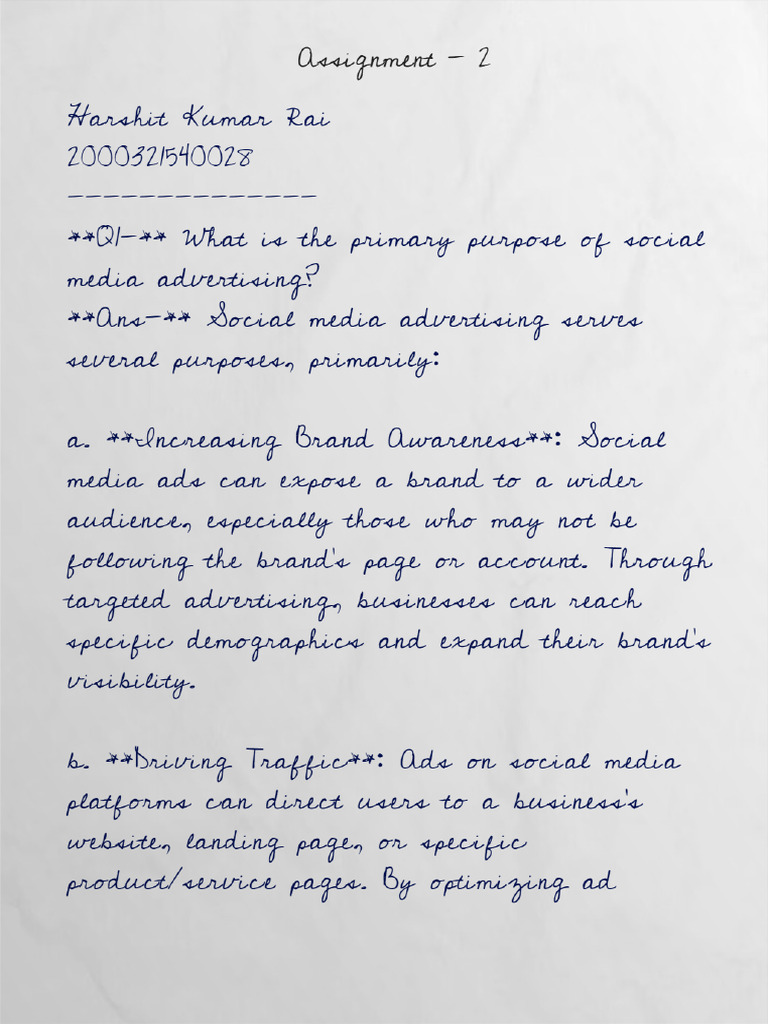 Assignment - 2
Harshit Kumar Rai
2000321540028
--------------
**Q1-** What is the primary purpose of social
media advertising?
**Ans-** Social media advertising serves
several purposes, primarily:
a. **Increasing Brand Awareness**: Social
media ads can expose a brand to a wider
audience, especially those who may not be
following the brand's page or account. Through
targeted advertising, businesses can reach
specific demographics and expand their brand's
visibility.
b. **Driving Traffic**: Ads on social media
platforms can direct users to a business's
website, landing page, or specific
product/service pages. By optimizing ad